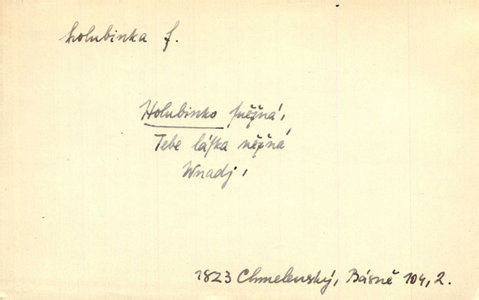 holubinka f.
Holubinko sněžná,
Tebe láſka něžná
Wnadj,
1823 Chmelenský, Básně 104, 2.